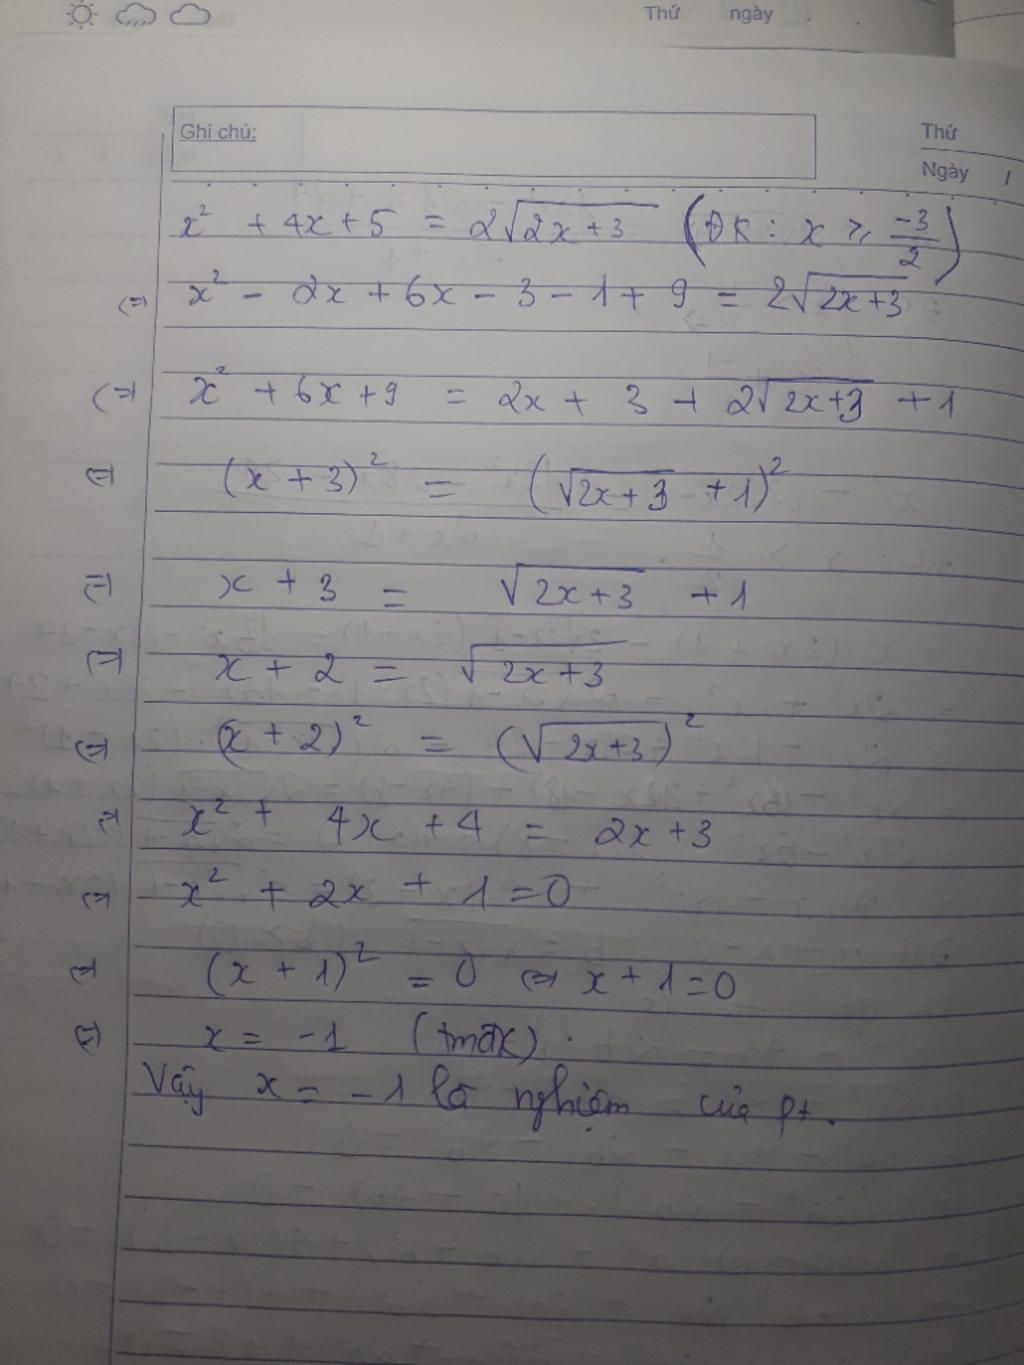 Thứ ngày
Ghi chú:
Thứ
Ngày /
x² + 4x + 5 = 2√(2x+3) (ĐK : x ⩾ -3/2)
⇔ x² - 2x + 6x - 3 - 1 + 9 = 2√(2x+3)
⇔ x² + 6x + 9 = 2x + 3 + 2√(2x+3) + 1
⇔ (x + 3)² = (√(2x+3) + 1)²
⇔ x + 3 = √(2x+3) + 1
⇔ x + 2 = √(2x+3)
⇔ (x + 2)² = (√(2x+3))²
⇔ x² + 4x + 4 = 2x + 3
⇔ x² + 2x + 1 = 0
⇔ (x + 1)² = 0 ⇔ x + 1 = 0
⇔ x = -1 (tmđk).
Vậy x = -1 là nghiệm của pt.